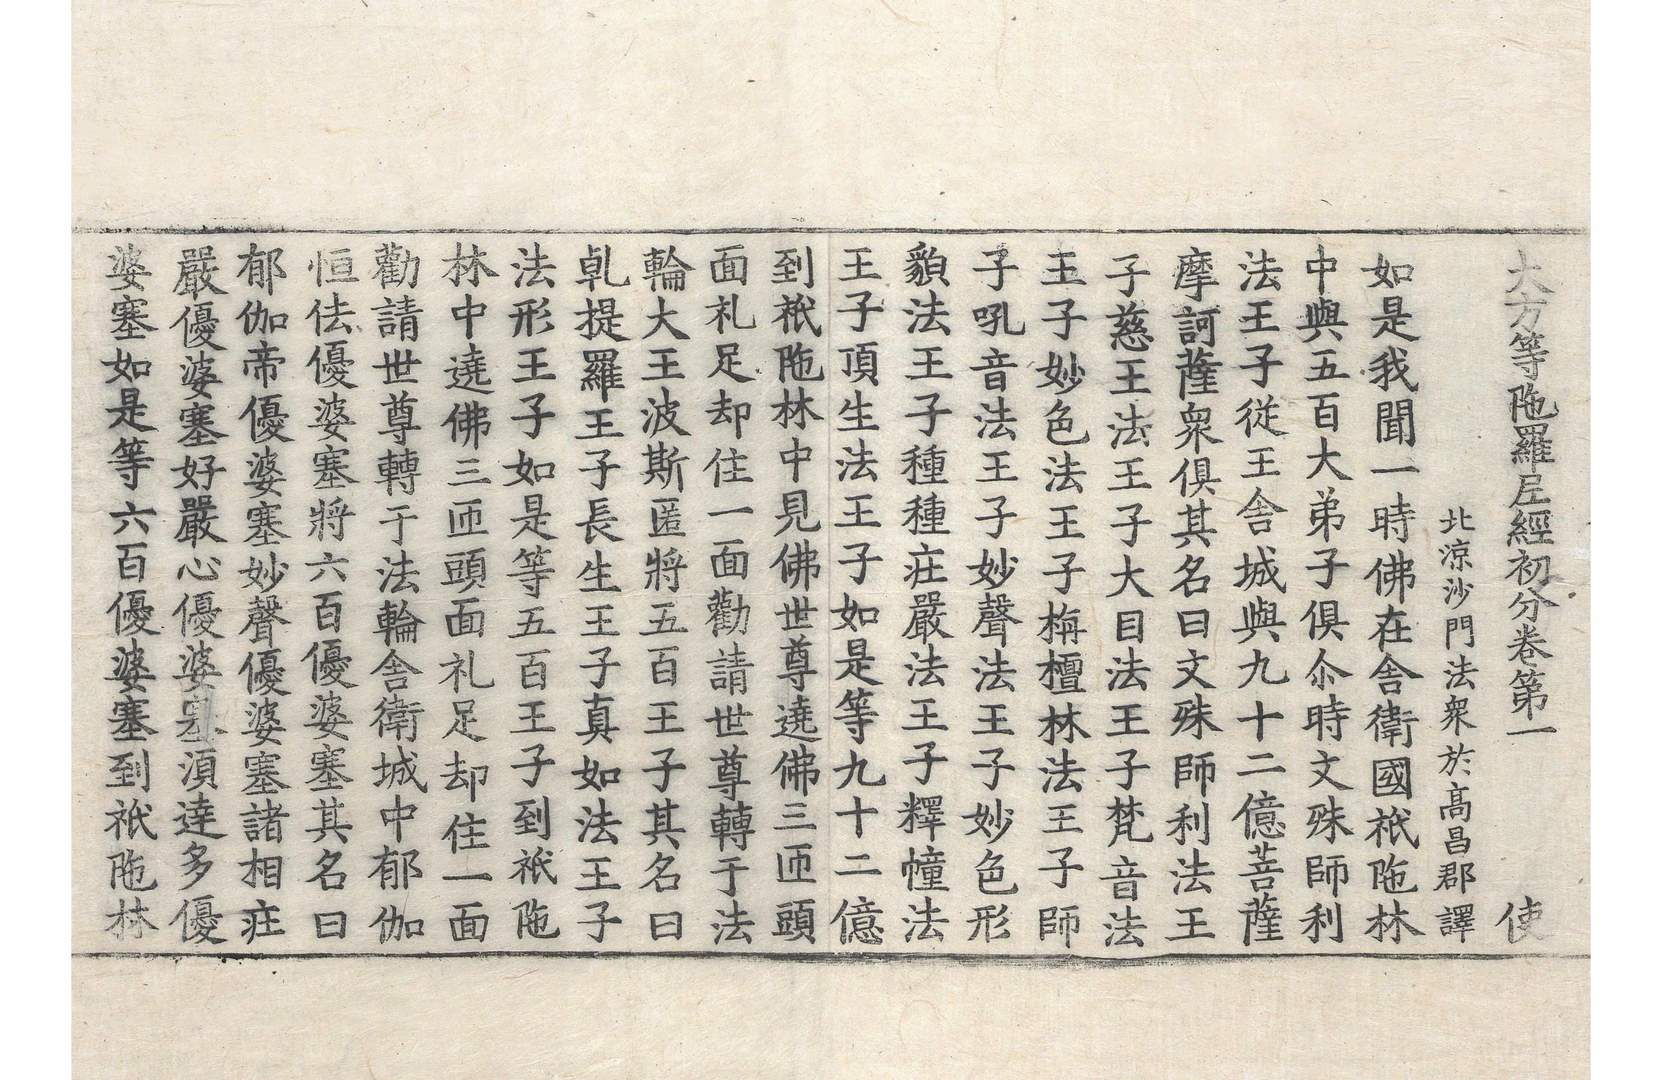 大方等陁羅尼經初分卷第一 使
北涼沙門法衆於高昌郡譯
如是我聞一時佛在舍衛國祇陁林
中與五百大弟子俱尒時文殊師利
法王子從王舍城與九十二億菩薩
摩訶薩衆俱其名曰文殊師利法王
子慈王法王子大目法王子梵音法
王子妙色法王子栴檀林法王子師
子吼音法王子妙聲法王子妙色形
貌法王子種種庄嚴法王子釋幢法
王子頂生法王子如是等九十二億
到祇陁林中見佛世尊遶佛三匝頭
面礼足却住一面勸請世尊轉于法
輪大王波斯匿將五百王子其名曰
乹提羅王子長生王子真如法王子
法形王子如是等五百王子到祇陁
林中遶佛三匝頭面礼足却住一面
勸請世尊轉于法輪舍衛城中郁伽
恒佉優婆塞將六百優婆塞其名曰
郁伽帝優婆塞妙聲優婆塞諸相庄
嚴優婆塞好嚴心優婆塞湏達多優
婆塞如是等六百優婆塞到祇陁林